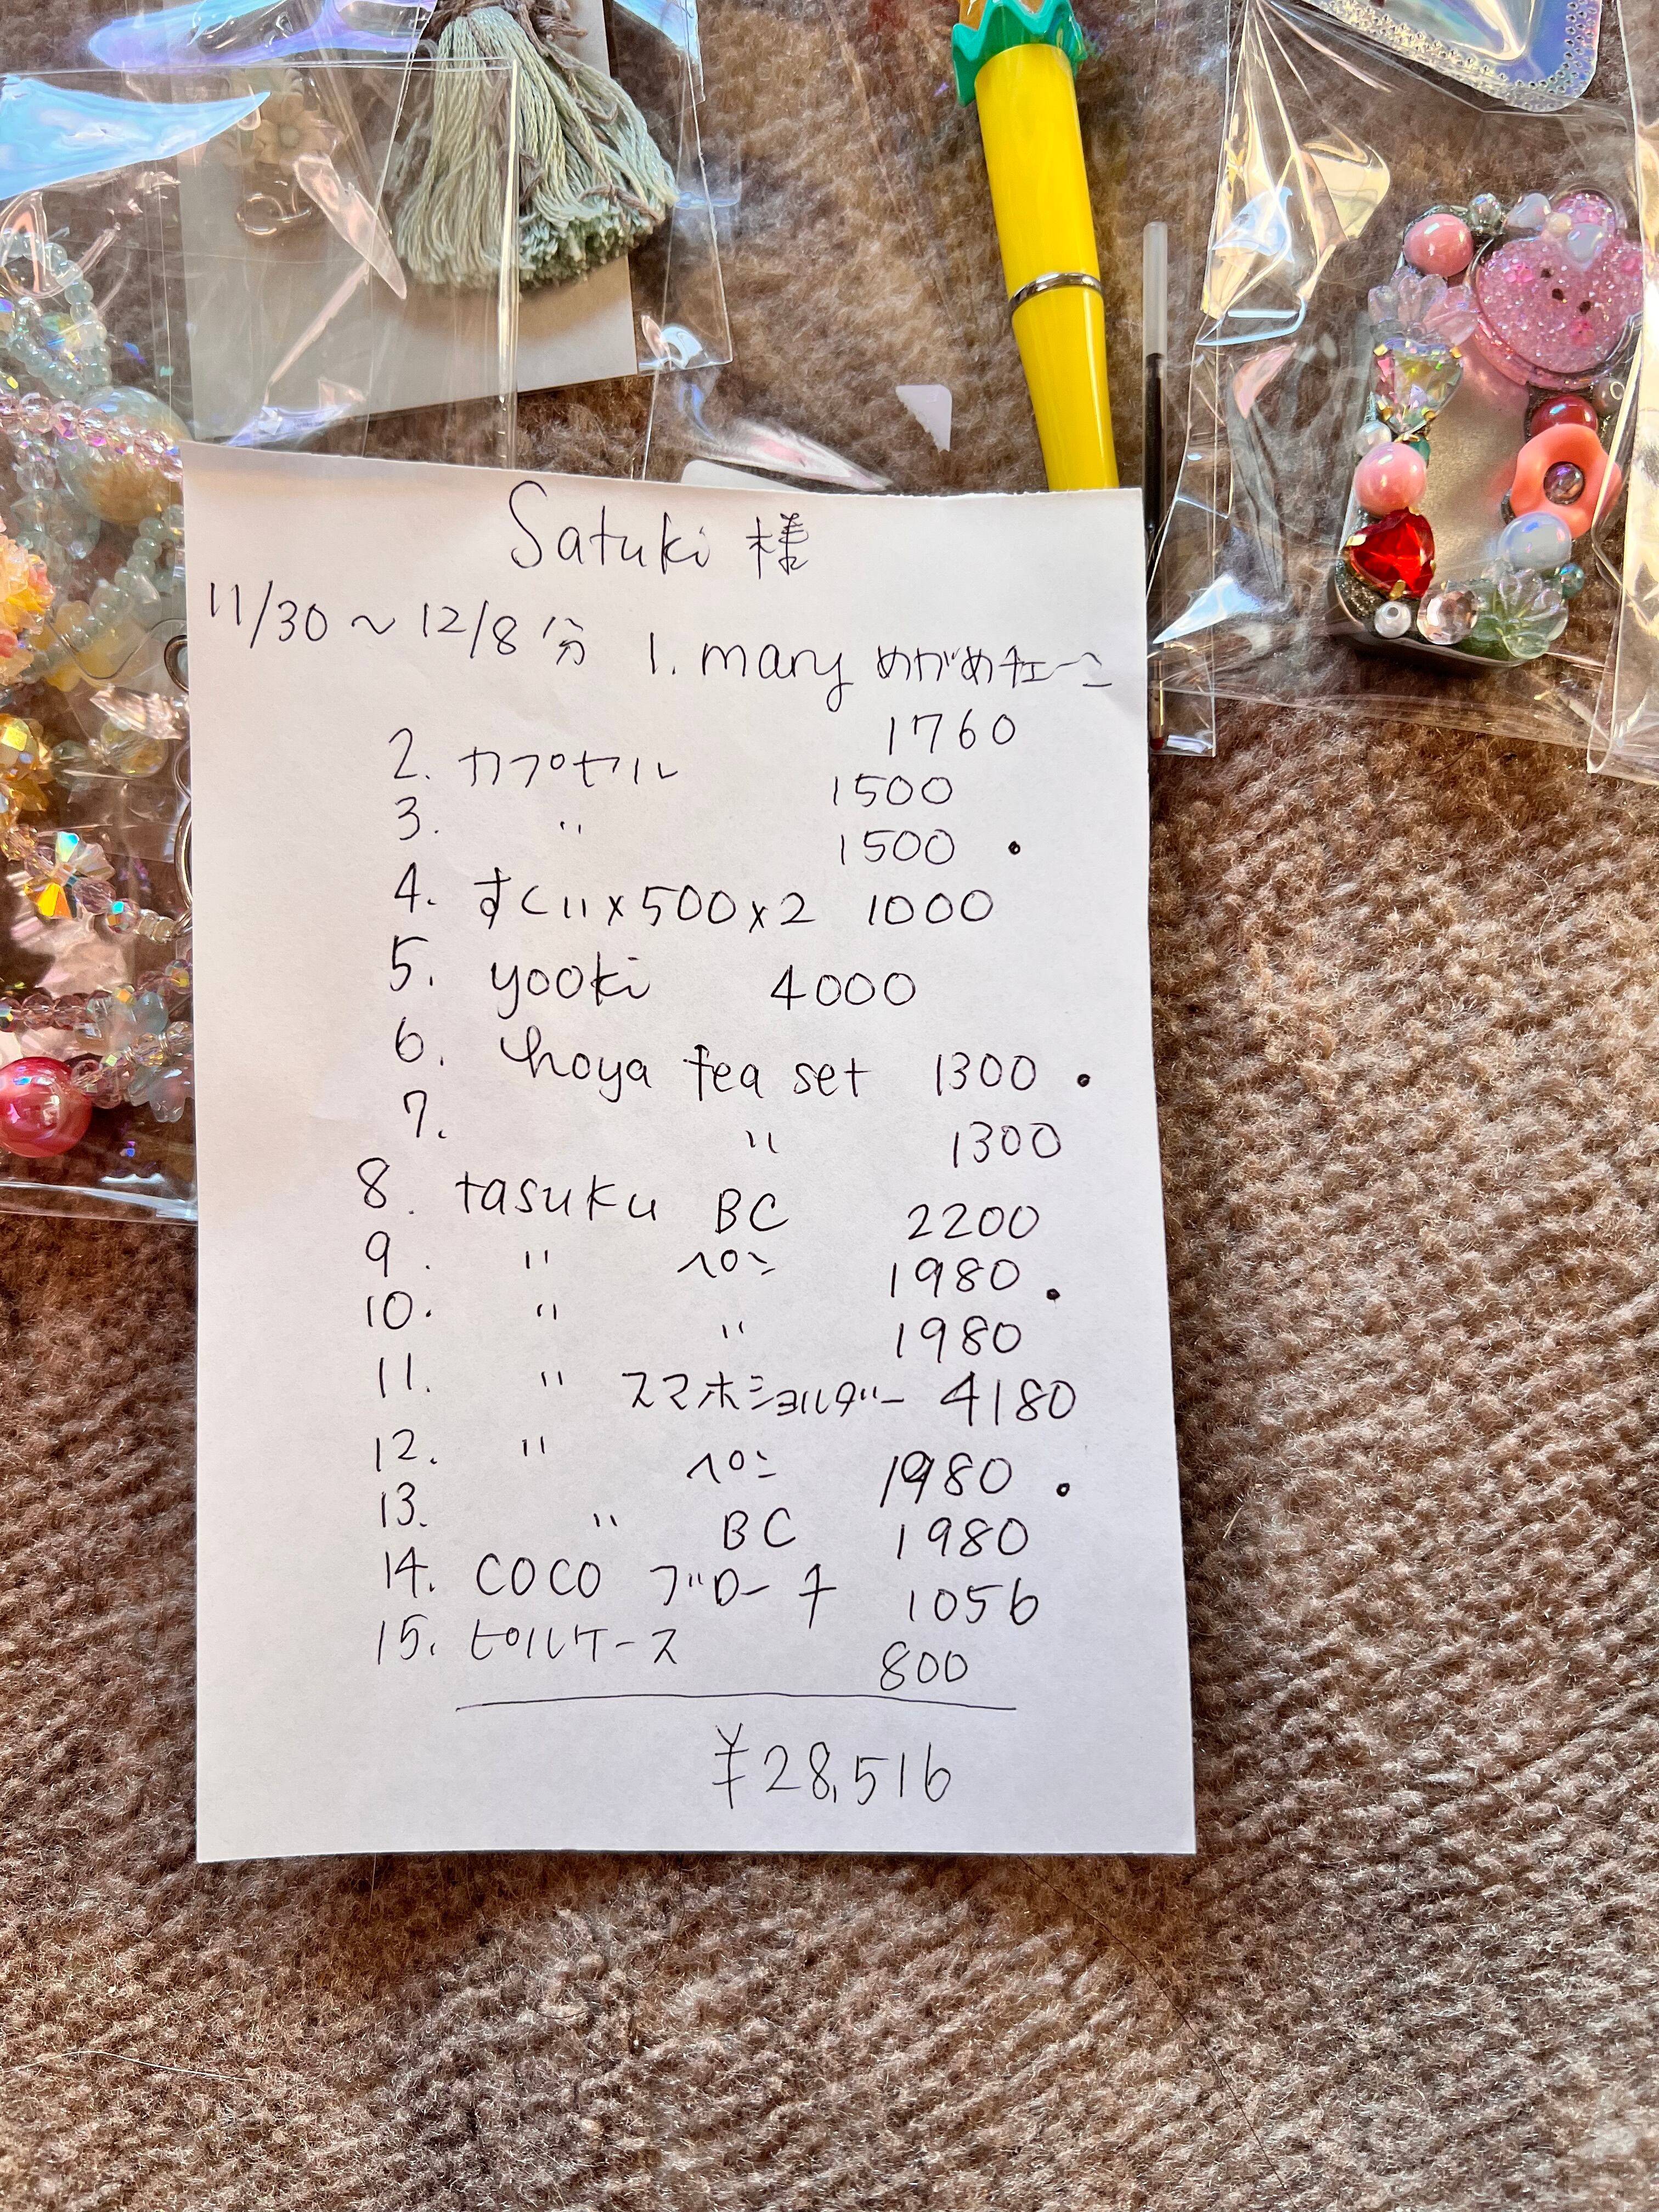 Satuki 様
11/30 ~ 12/8 分 1. mary めがめチェーン
1760
2. カプセル 1500
3. 〃 1500 .
4. すくい×500×2 1000
5. yooki 4000
6. hoya tea set 1300 .
7. 〃 1300
8. tasuku BC 2200
9. 〃 ペン 1980 .
10. 〃 〃 1980
11. 〃 スマホショルダー 4180
12. 〃 ペン 1980 .
13. 〃 BC 1980
14. COCO ブローチ 1056
15. ピルケース 800
¥28,516